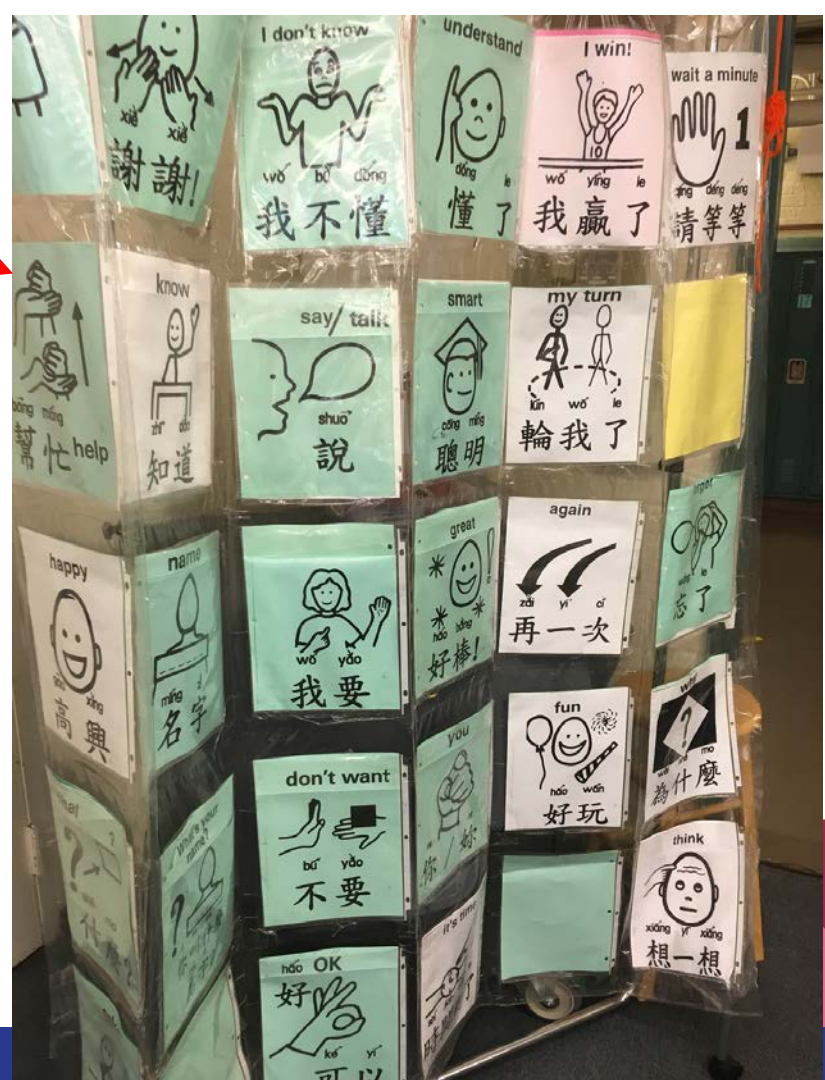 xiè xiè
謝謝!
I don't know
wǒ bù dǒng
我不懂
understand
dǒng le
懂了
I win!
10
wǒ yíng le
我贏了
wait a minute
1
qǐng děng děng
請等等
bāng máng
幫忙 help
know
zhī dào
知道
say/talk
shuō
說
smart
cōng míng
聰明
my turn
lún wǒ le
輪我了
17
happy
gāo xìng
高興
name
míng zì
名字
wǒ yào
我要
great
!
hǎo bàng
好棒!
again
zài yí cì
再一次
wàng le
忘了
don't want
bú yào
不要
you
你 妳
fun
hǎo wán
好玩
why
?
為什麼
?
什麼?
What's your name?
?
it's time
think
xiǎng yì xiǎng
想一想
hǎo OK
好
kě yǐ
可以